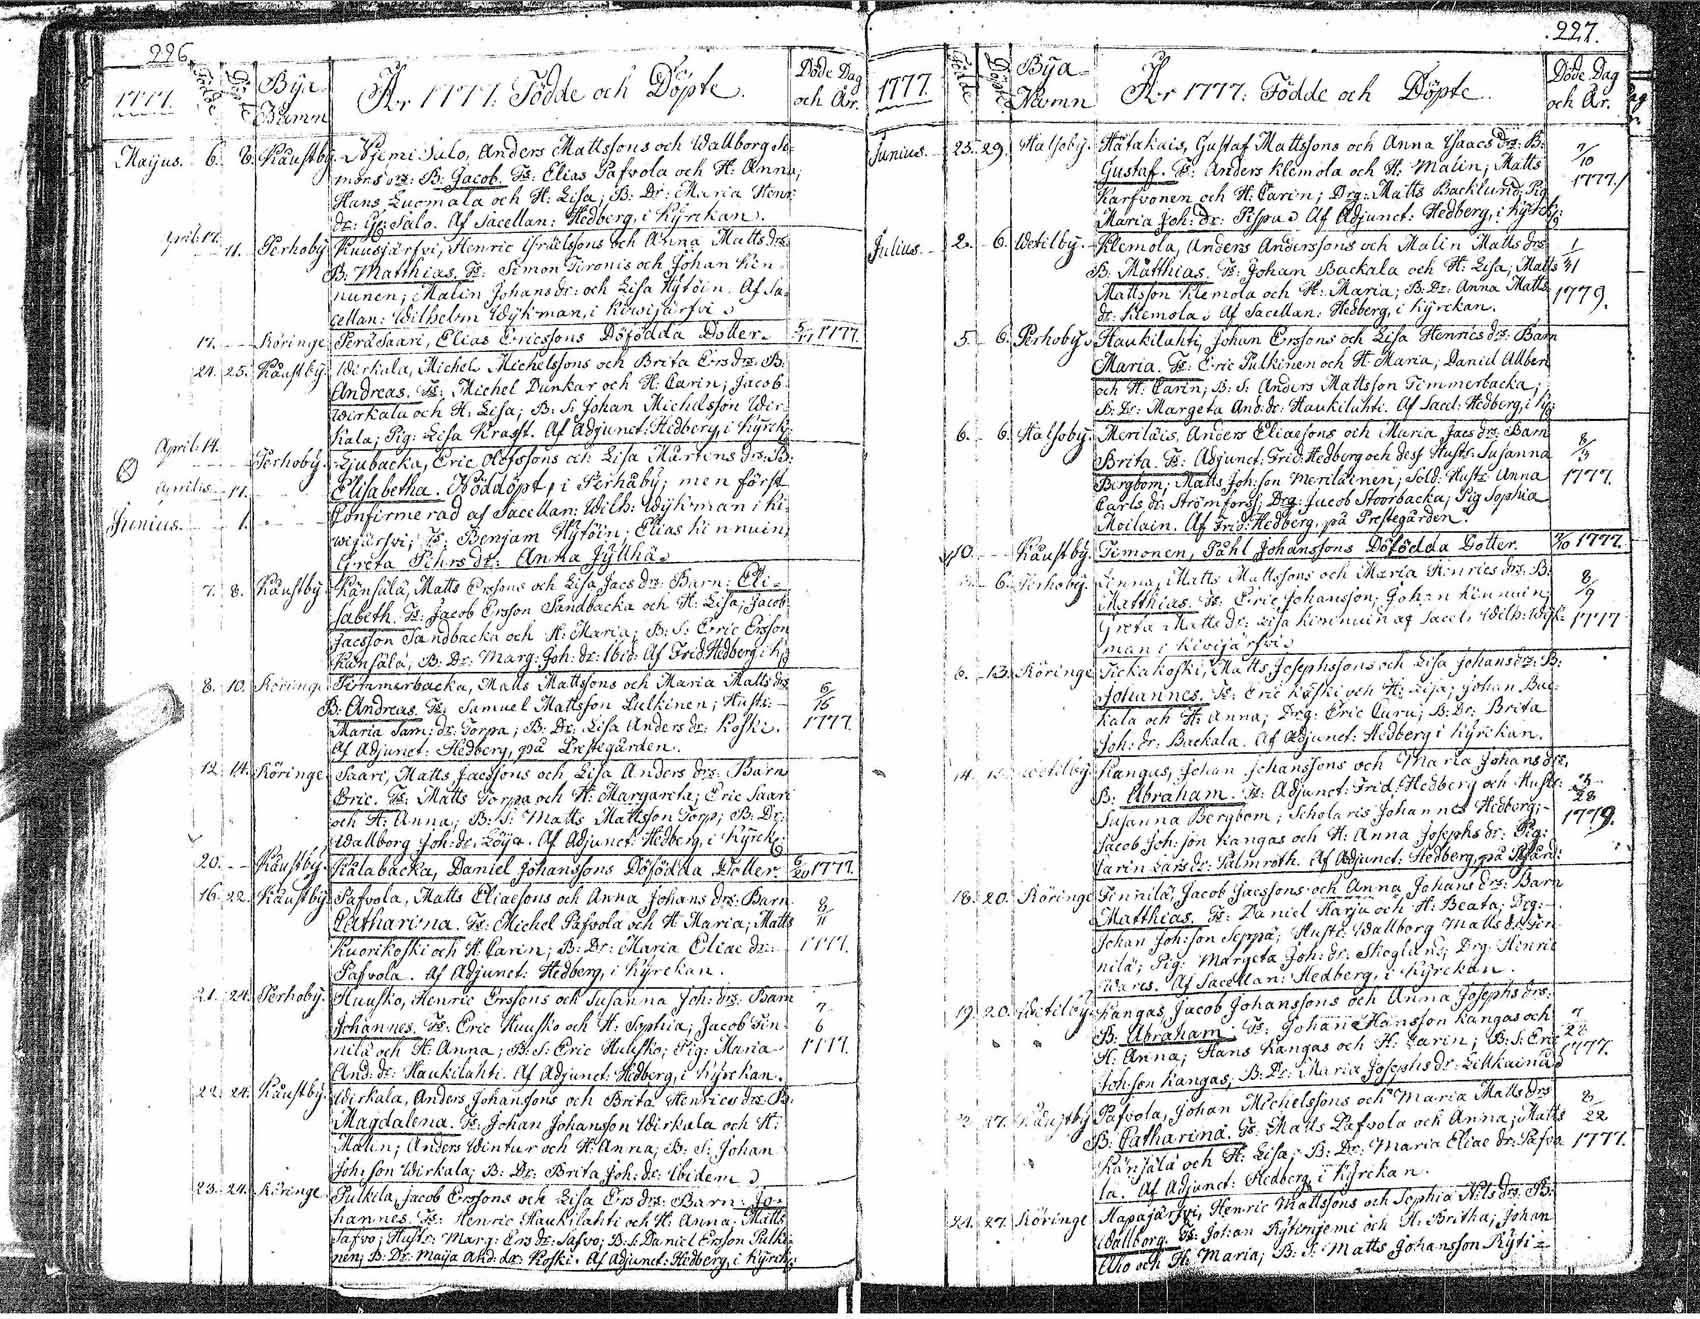 226
1777.
Födde
Döpte
Bya-
Nåmn
År 1777: Födde och Döpte.
Döde Dag
och År.
Majus. 6. 8. Kaustby. Niemi Salo, Anders Mattssons och Wallborg Si-
mons drs: B: Jacob. Ts: Elias Pafvola och H: Anna;
Hans Luomala och H: Lisa; B: Dr: Maria Henr:
dr: Gr: Salo. Af Sacellan: Hedberg, i Kyrckan.
April: 17. 11. Perhoby. Kuusjärfvi, Henric Israelssons och Anna Matts drs:
B: Matthias. Ts: Simon Tironis och Johan Kin-
nunen; Malin Johans dr: och Lisa Hytöin. Af Sa-
cellan: Wilhelm Wykman, i Kiwijärfvi.
17. Köringe Peräsaari, Elias Ericssons Döfödda Dotter. 5/17 1777.
24. 25. Kaustby. Wirkala, Michel Michelssons och Brita Ers drs: B:
Andreas. Ts: Michel Dunkar och H: Carin; Jacob
Wirkala och H: Lisa; B: S: Johan Michelsson Wir-
kala; Pig: Lisa Krafft. Af Adjunct: Hedberg, i Kyrck:
April: 14. Perhoby. Ljubacka, Eric Olofssons och Lisa Mårtens drs: B:
Aprilis 17. Elisabetha. Nöddöpt, i Perhåby; men först
Junius. 1. Confirmerad af Sacellan: Wilh: Wykman i Ki-
wijärfvi; Ts: Benjam Hytöin; Elias Kinnuin;
Greta Pehrs dr: Anna Jylhä.
7. 8. Kaustby. Känsälä, Matts Erssons och Lisa Jacs drs: Barn: Eli-
sabeth. Ts: Jacob Ersson Sandbacka och H: Lisa; Jacob
Jacsson Sandbacka och H: Maria; B: S: Eric Ersson
Känsälä; B: Dr: Marg: Joh: dr: Ibid: Af Frid: Hedberg i K:
8. 10. Köringe Timmerbacka, Matts Mattssons och Maria Matts drs 6/16 1777.
B: Andreas. Ts: Samuel Mattsson Pulkinen; Hustr:
Maria Sam: dr: Torpa; B: Dr: Lisa Anders dr: Koski.
Af Adjunct: Hedberg, på Prestegården.
12. 14. Köringe Saari, Matts Jacssons och Lisa Anders drs: Barn
Eric. Ts: Matts Torpa och H: Margareta; Eric Saari
och H: Anna; B: S: Matts Mattsson Torp; B: Dr:
Wallborg Joh: dr: Löija. Af Adjunct: Hedberg, i Kyrck:
20. Kaustby. Kålabacka, Daniel Johanssons Döfödda Dotter. 6/20 1777.
16. 22. Kaustby Pafvola, Matts Eliaesons och Anna Johans drs: Barn 8/11 1777.
Catharina. Ts: Michel Pafvola och H: Maria; Matts
Kuorikoski och H: Carin; B: Dr: Maria Eliae dr:
Pafvola. Af Adjunct: Hedberg, i Kyrckan.
21. 24. Perhoby. Huusko, Henric Erssons och Susanna Joh: drs: Barn 7/6 1777.
Johannes. Ts: Eric Huusko och H: Sophia; Jacob Tin-
nilä och H: Anna; B: S: Eric Huusko; Pig: Maria
And: dr: Haukilahti. Af Adjunct: Hedberg, i Kyrckan.
22. 24. Kaustby. Wirkala, Anders Johanssons och Brita Henrics drs: B:
Magdalena. Ts: Johan Johansson Wirkala och H:
Malin; Anders Wintur och H: Anna; B: S: Johan
Joh: son Wirkala; B: Dr: Brita Joh: dr: Ibidem
23. 24. Köringe Pulkila, Jacob Erssons och Lisa Ers drs: Barn: Jo-
hannes. Ts: Henric Haukilahti och H: Anna; Matts
Pafvo; Hustr: Marg: Ers dr: Pafvo; B: S: Daniel Ersson Pulki-
nen; B: Dr: Maija And: dr: Koski. Af Adjunct: Hedberg, i Kyrck:
227.
1777.
Födde
Döpte
Bya-
Nåmn
År 1777: Födde och Döpte.
Döde Dag
och År.
Junius. 23. 29. Halsoby. Hätakais, Gustaf Mattssons och Anna Isaacs drs: B: 7/10 1777.
Gustaf. Ts: Anders Klemola och H: Malin; Matts
Karfvonen och H: Carin; Drg: Matts Backlund; Pig:
Maria Joh: dr: Pispa. Af Adjunct: Hedberg, i Kyrck:
Julius. 2. 6. Wetilby. Klemola, Anders Anderssons och Malin Matts drs 1/31 1779.
B: Matthias. Ts: Johan Backala och H: Lisa; Matts
Mattsson Klemola och H: Maria; B: Dr: Anna Matts
dr: Klemola. Af Sacellan: Hedberg, i Kyrckan.
5. 6. Perhoby. Haukilahti, Johan Erssons och Lisa Henrics drs: Barn
Maria. Ts: Eric Pulkinen och H: Maria; Daniel Ahlben
och H: Carin; B: S: Anders Mattsson Timmerbacka;
B: Dr: Margeta And: dr: Haukilahti. Af Sacel: Hedberg, i K:
6. 6. Halsoby. Meriläis, Anders Eliaesons och Maria Jacs drs: Barn 8/3 1777.
Brita. Ts: Adjunct: Frid: Hedberg och dess Hustr: Susanna
Bergbom; Matts Joh: son Meriläinen; Sold: Hustr: Anna
Carls dr: Strömfors; Drg: Jacob Stoorbacka; Pig Sophia
Moilain. Af Frid: Hedberg, på Prestegården.
10. Kaustby. Timonen, Påhl Johanssons Döfödda Dotter. 7/10 1777.
6. Perhoby. Linna, Matts Mattssons och Maria Hinrics drs: B: 8/9 1777
Matthias. Ts: Eric Johansson; Johan Kinnuin;
Greta Matts dr: Lisa Kinnuin af Sacel: Wilh: Wyk-
man i Kivijärfvi
6. 13. Köringe Tickakoski, Matts Josephssons och Lisa Johans drs: B:
Johannes. Ts: Eric Koski och H: Lisa; Johan Bac-
kala och H: Anna; Drg: Eric Curu; B: Dr: Brita
Joh: dr: Backala. Af Adjunct: Hedberg i Kyrckan.
14. 15. Wetilby. Kangus, Johan Johanssons och Maria Johans drs, 3/28 1779.
B: Abraham. Ts: Adjunct: Frid: Hedberg och Hustr:
Susanna Bergbom; Scholaris Johannes Hedberg;
Jacob Joh: son Kangas och H: Anna Josephs dr: Pig:
Carin Lars dr: Palmroth. Af Adjunct: Hedberg, på Pgård:
18. 20. Köringe Tinnilä, Jacob Jacssons och Anna Johans drs: Barn
Matthias. Ts: Daniel Harju och H: Beata; Drg:
Johan Joh: son Seppä; Hustr: Wallborg Matts dr: Tin-
nilä; Pig: Margeta Joh: dr: Skoglund; Drg: Henric
Wares. Af Sacellan: Hedberg, i Kyrckan.
19. 20. Wetilby. Kangas, Jacob Johanssons och Anna Josephs drs: 7/28 1777.
B: Abraham. Ts: Johan Hansson Kangas och
H: Anna; Hans Kangas och H: Carin; B: S: Eric
Joh: son Kangas; B: Dr: Maria Josephs dr:
27. Kaustby Pafvola, Johan Michelssons och Maria Matts drs 8/22 1777.
B: Catharina. Ts: Matts Pafvola och Anna; Matts
Känsälä och H: Lisa; B: Dr: Maria Eliae dr: Pafvo-
la. Af Adjunct: Hedberg i Kyrckan.
24. 27. Köringe Haapajärfvi, Henric Mattssons och Sophia Nils drs: B:
Wallborg. Ts: Johan Kytöniemi och H: Britha; Johan
Aho och H: Maria; B: S: Matts Johansson Kyti-